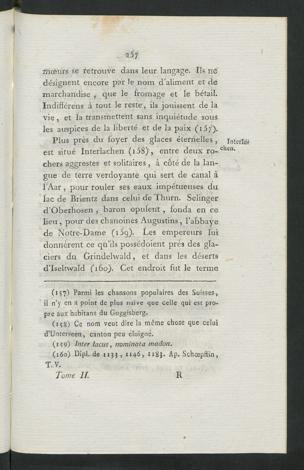 257
mœurs se retrouve dans leur langage. Ils ne
désignent encore par le nom d'aliment et de
marchandise, que le fromage et le bétail.
Indifférens à tout le reste, ils jouissent de la
vie, et la transmettent sans inquiétude sous
les auspices de la liberté et de la paix (157).
Plus près du foyer des glaces éternelles,
est situé Interlachen (158), entre deux ro-
chers aggrestes et solitaires, à côté de la lan-
gue de terre verdoyante qui sert de canal à
l'Aar, pour rouler ses eaux impétueuses du
lac de Brientz dans celui de Thurn. Selinger
d'Oberhosen, baron opulent, fonda en ce
lieu, pour des chanoines Augustins, l'abbaye
de Notre-Dame (159). Les empereurs lui
donnèrent ce qu'ils possédoient près des gla-
ciers du Grindelwald, et dans les déserts
d'Iseltwald (160). Cet endroit fut le terme
Interla-
chen.
(157) Parmi les chansons populaires des Suisses,
il n'y en a point de plus naïve que celle qui est pro-
pre aux habitans du Guggisberg.
(158) Ce nom veut dire la même chose que celui
d'Unterseen, canton peu éloigné.
(159) Inter lacus, nominata madon.
(160) Dipl. de 1133, 1146, 1183. Ap. Schœpflin,
T. V.
Tome II. R